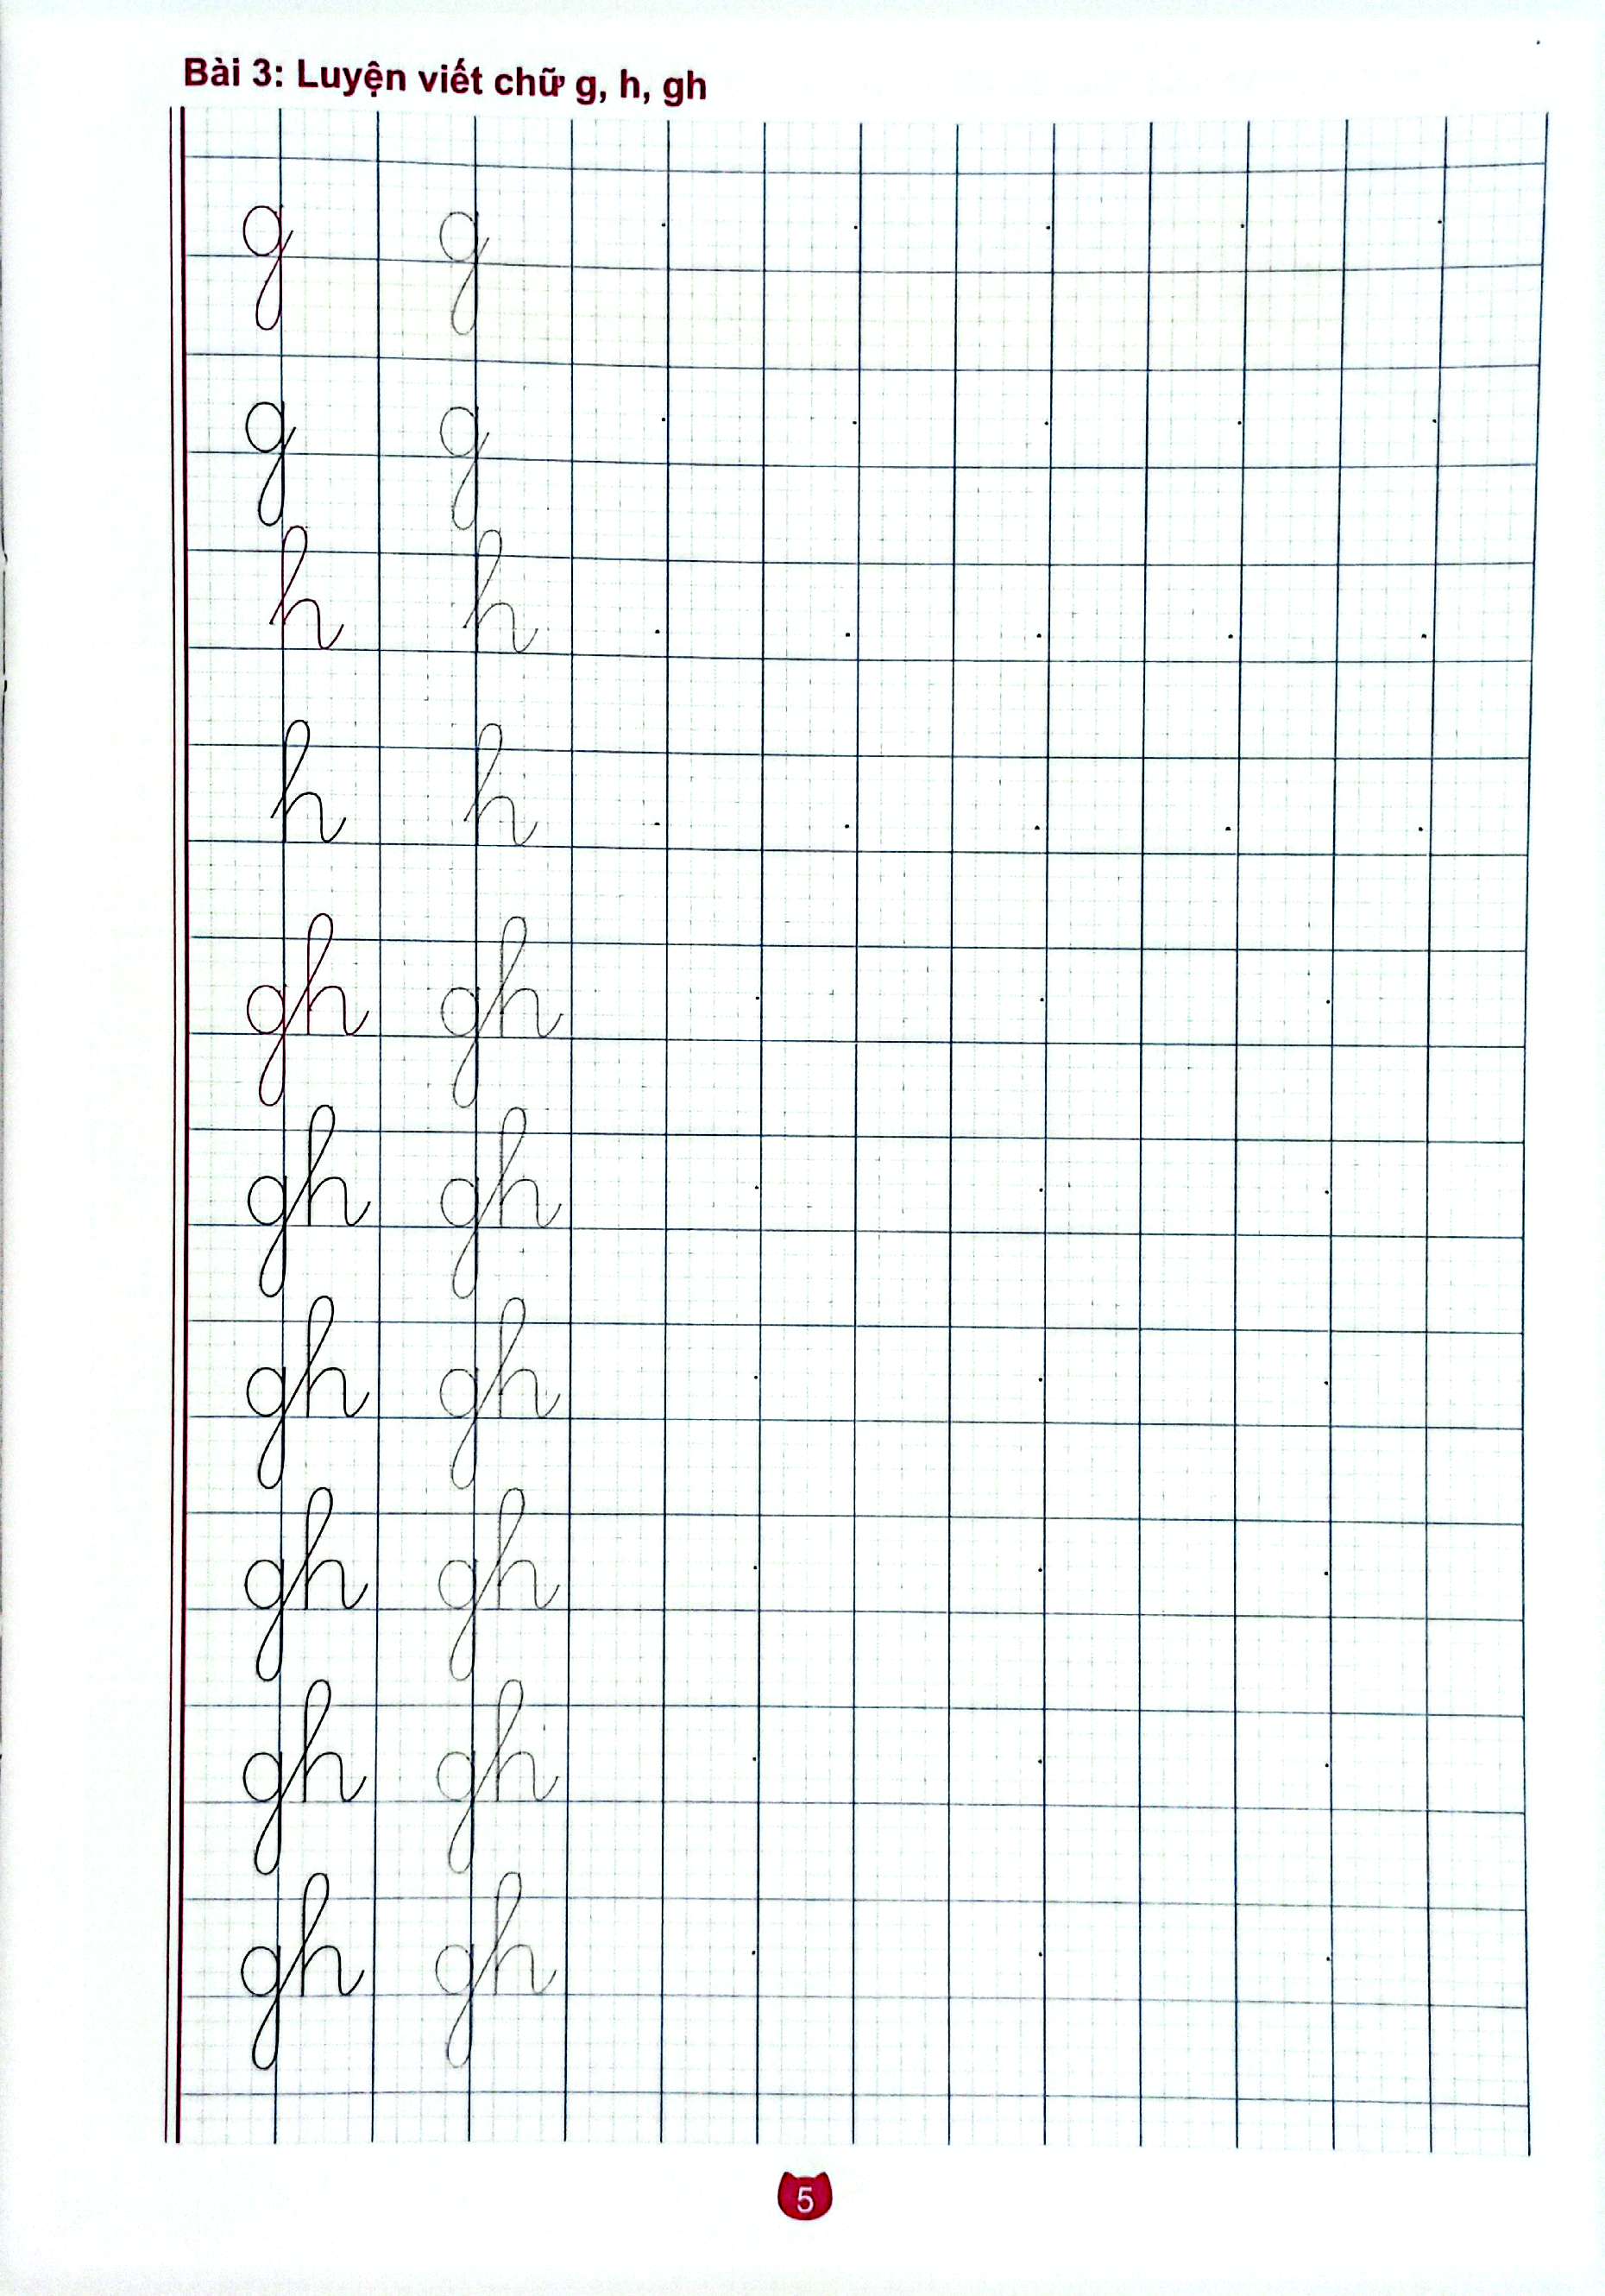 Bài 3: Luyện viết chữ g, h, gh
g g
g g
h h
h h
gh gh
gh gh
gh gh
gh gh
gh gh
gh gh
5